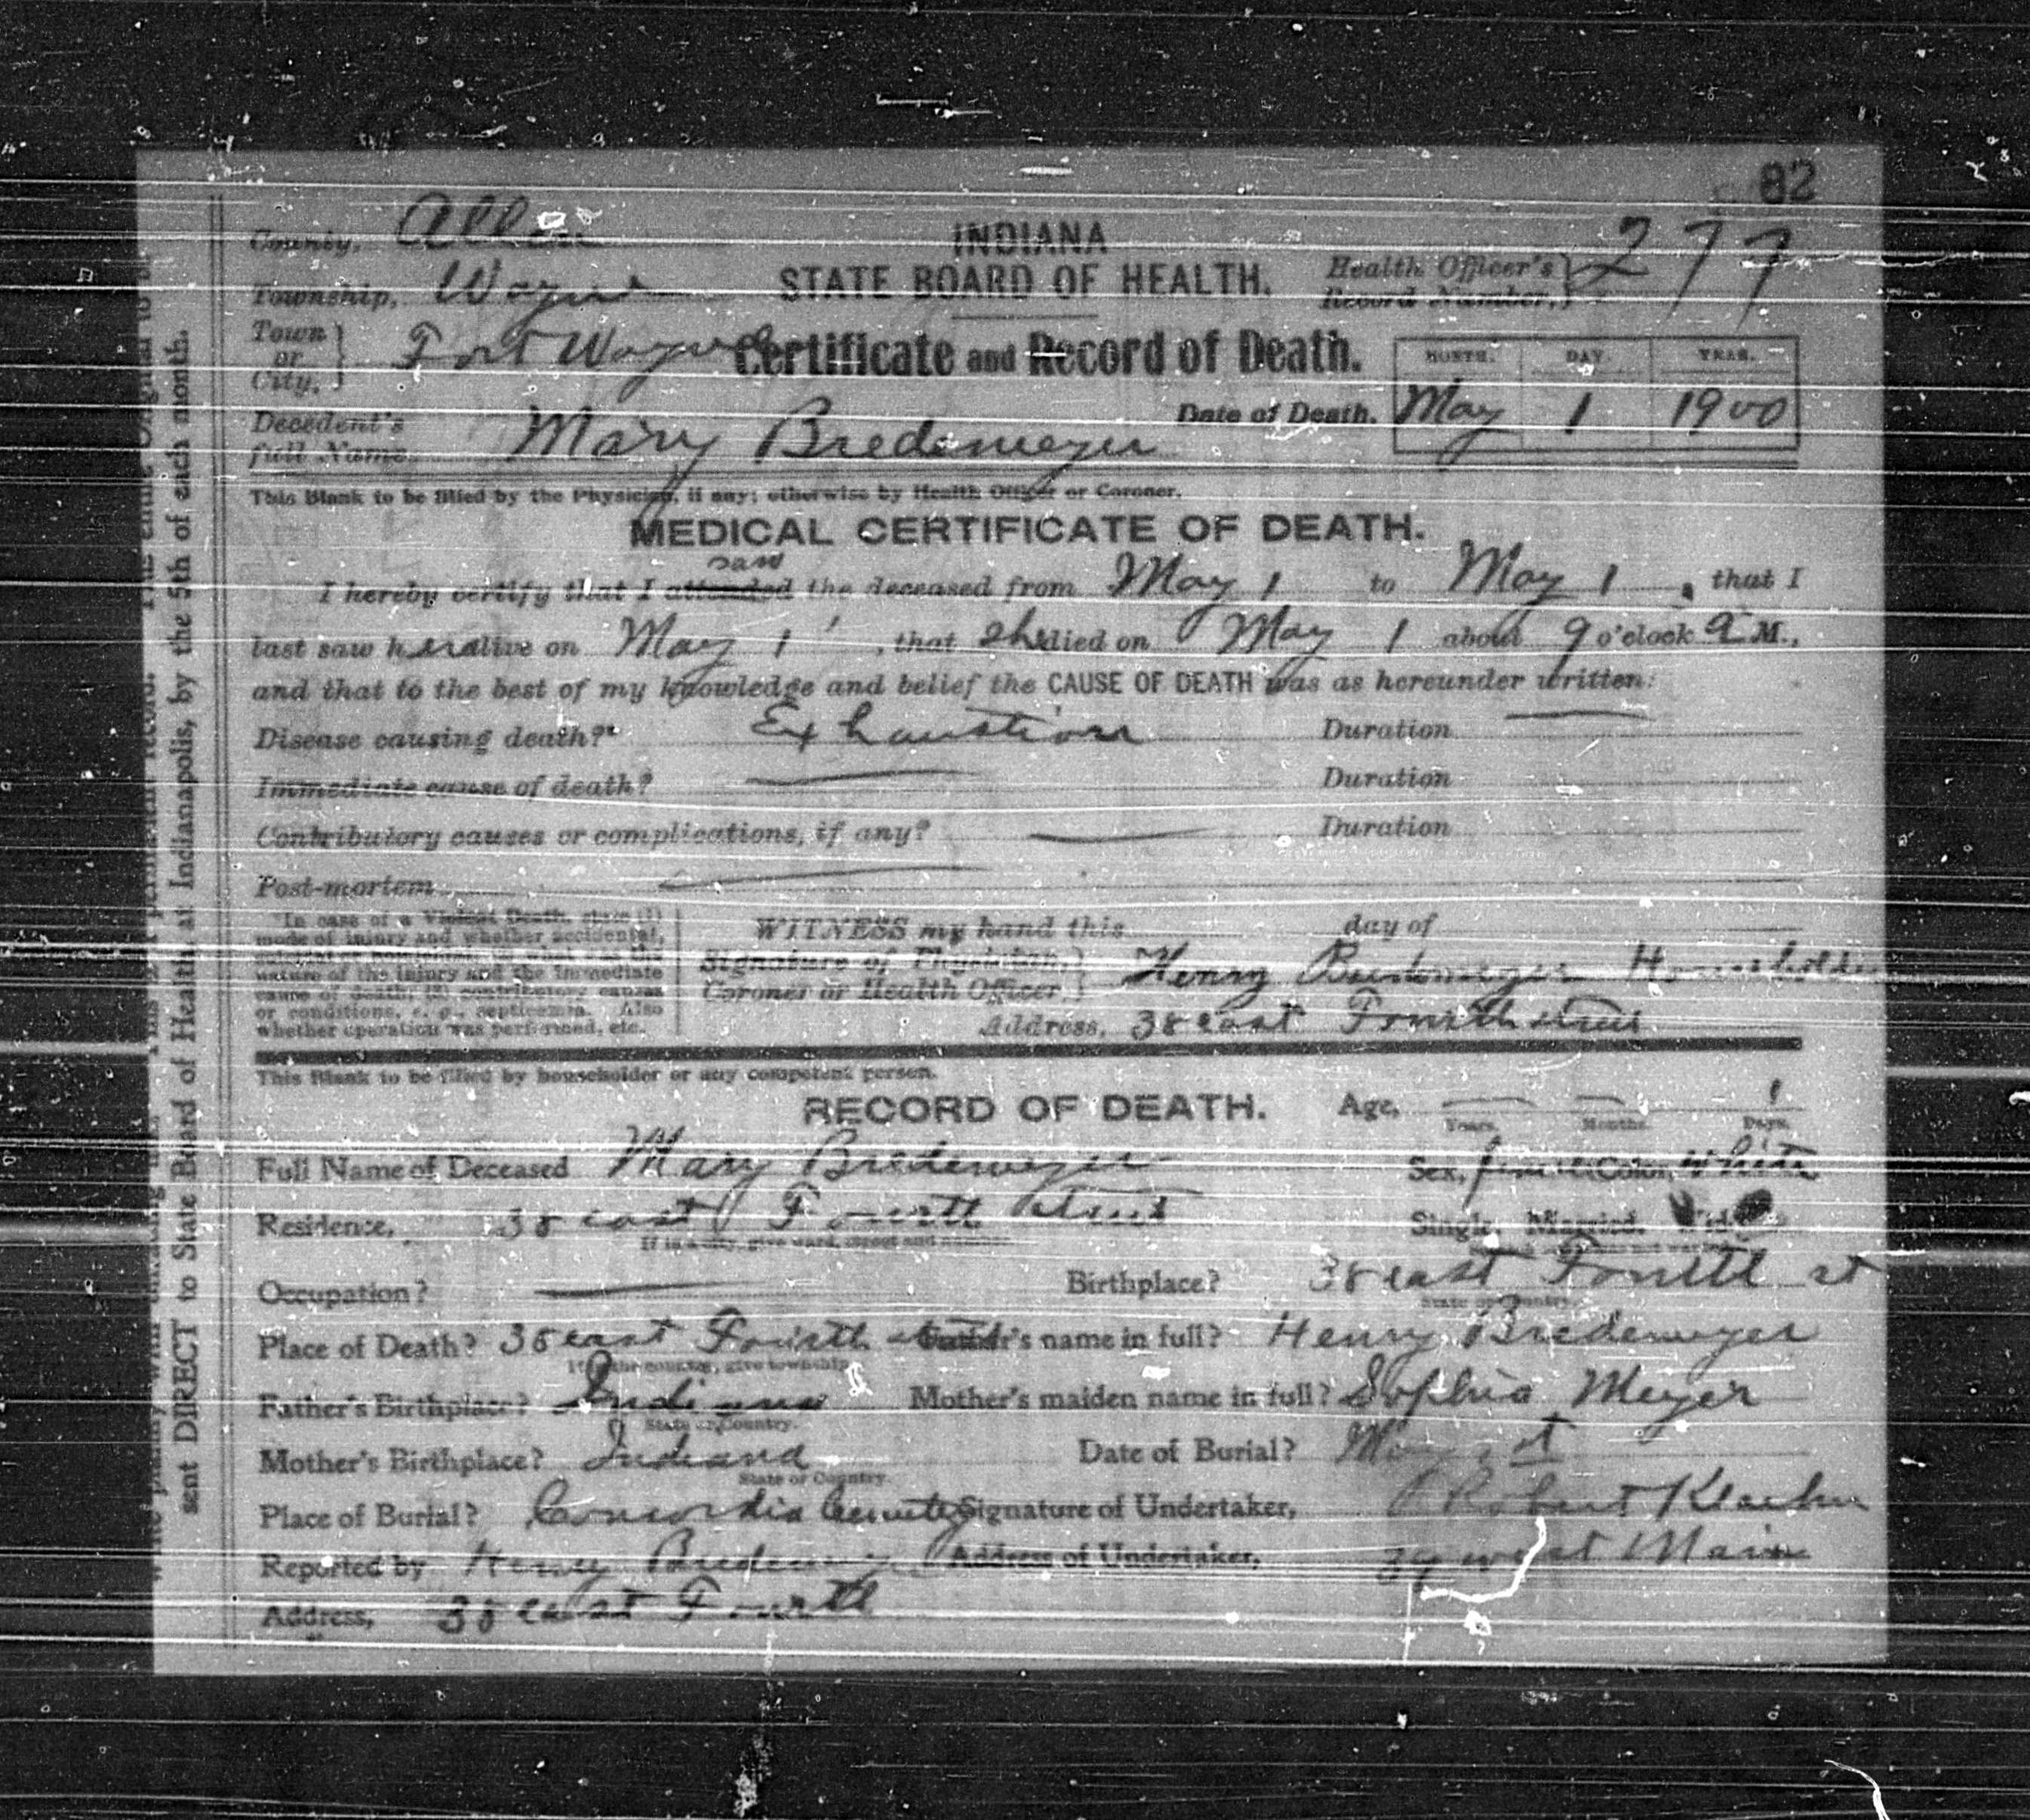 82
County, Allen
INDIANA
STATE BOARD OF HEALTH.
Health Officer's Record Number, 277
Township, Wayne
Town or City, Fort Wayne
Certificate and Record of Death.
MONTH. DAY. YEAR.
Date of Death. May 1 1900
Decedent's full Name Mary Bredemeyer
This Blank to be filled by the Physician, if any; otherwise by Health Officer or Coroner.
MEDICAL CERTIFICATE OF DEATH.
saw
I hereby certify that I attended the deceased from May 1 to May 1, that I
last saw her alive on May 1, that she died on May 1 about 9 o'clock a M.,
and that to the best of my knowledge and belief the CAUSE OF DEATH was as hereunder written:
Disease causing death?* Exhaustion Duration
Immediate cause of death? Duration
Contributory causes or complications, if any? Duration
Post-mortem
*In case of a Violent Death, state (1)
mode of injury and whether accidental,
nature of the injury and the immediate
cause of death; (3) contributory causes
or conditions, e. g., septicemia. Also
whether operation was performed, etc.
WITNESS my hand this day of
Signature of Physician, Coroner or Health Officer, Henry Bredemeyer Householder
Address, 38 east Fourth street
This Blank to be filled by householder or any competent person.
RECORD OF DEATH. Age, 1
Years. Months. Days.
Full Name of Deceased Mary Bredemeyer Sex, female Color, White
Residence, 38 east Fourth street Single, Married,
If in a city, give ward, street and number
Occupation? Birthplace? 38 east Fourth st
State or Country.
Place of Death? 38 east Fourth street Father's name in full? Henry Bredemeyer
If in the country, give township
Father's Birthplace? Indiana Mother's maiden name in full? Sophia Meyer
State or Country.
Mother's Birthplace? Indiana Date of Burial? May
State or Country.
Place of Burial? Concordia Cemetery Signature of Undertaker, Robert Klaehn
Reported by Henry Bredemeyer Address of Undertaker, 39 west Main
Address, 38 east Fourth
sent DIRECT to State Board of Health, at Indianapolis, by the 5th of each month.